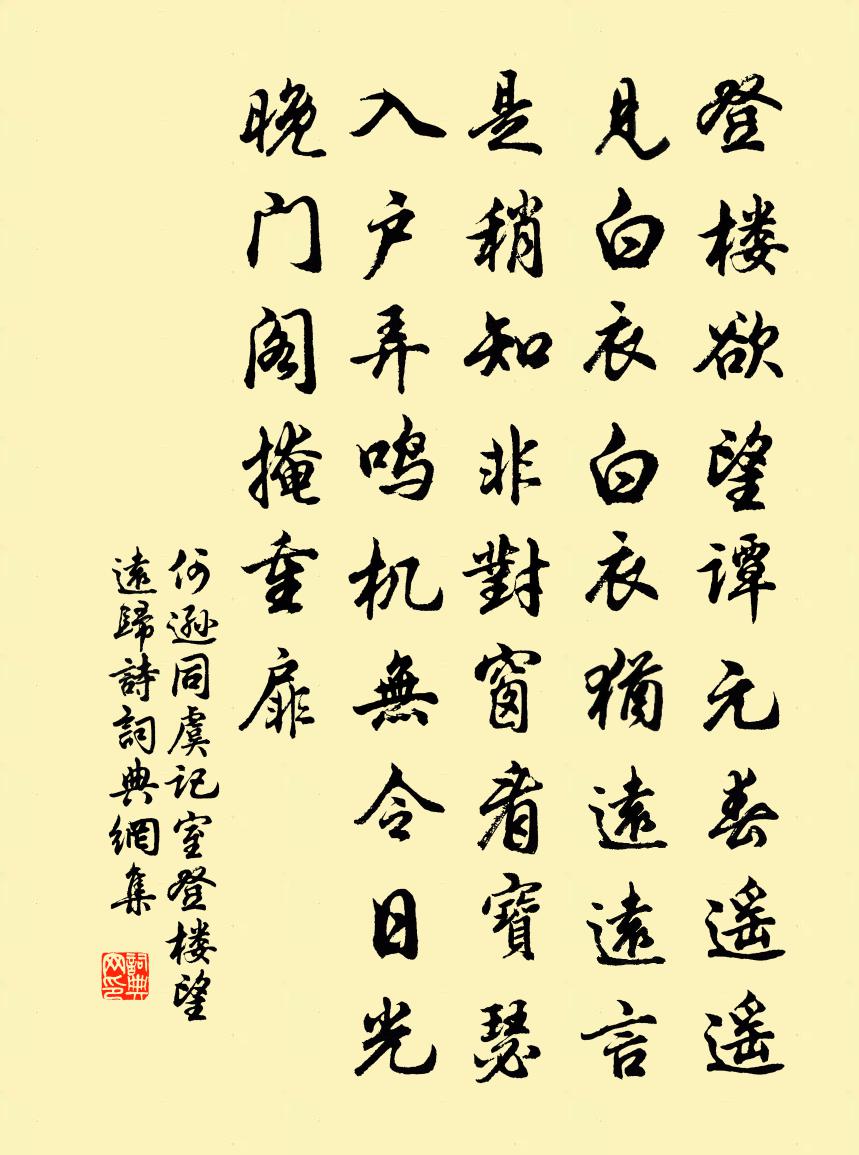 登楼欲望谭元春遥遥
見白衣白衣猶遠遠言
是稍知非對窗看寶瑟
入户弄鸣机無令日光
晚门阁掩重扉
何遜同虞记室登楼望
遠歸詩詞典網集
詞典网印